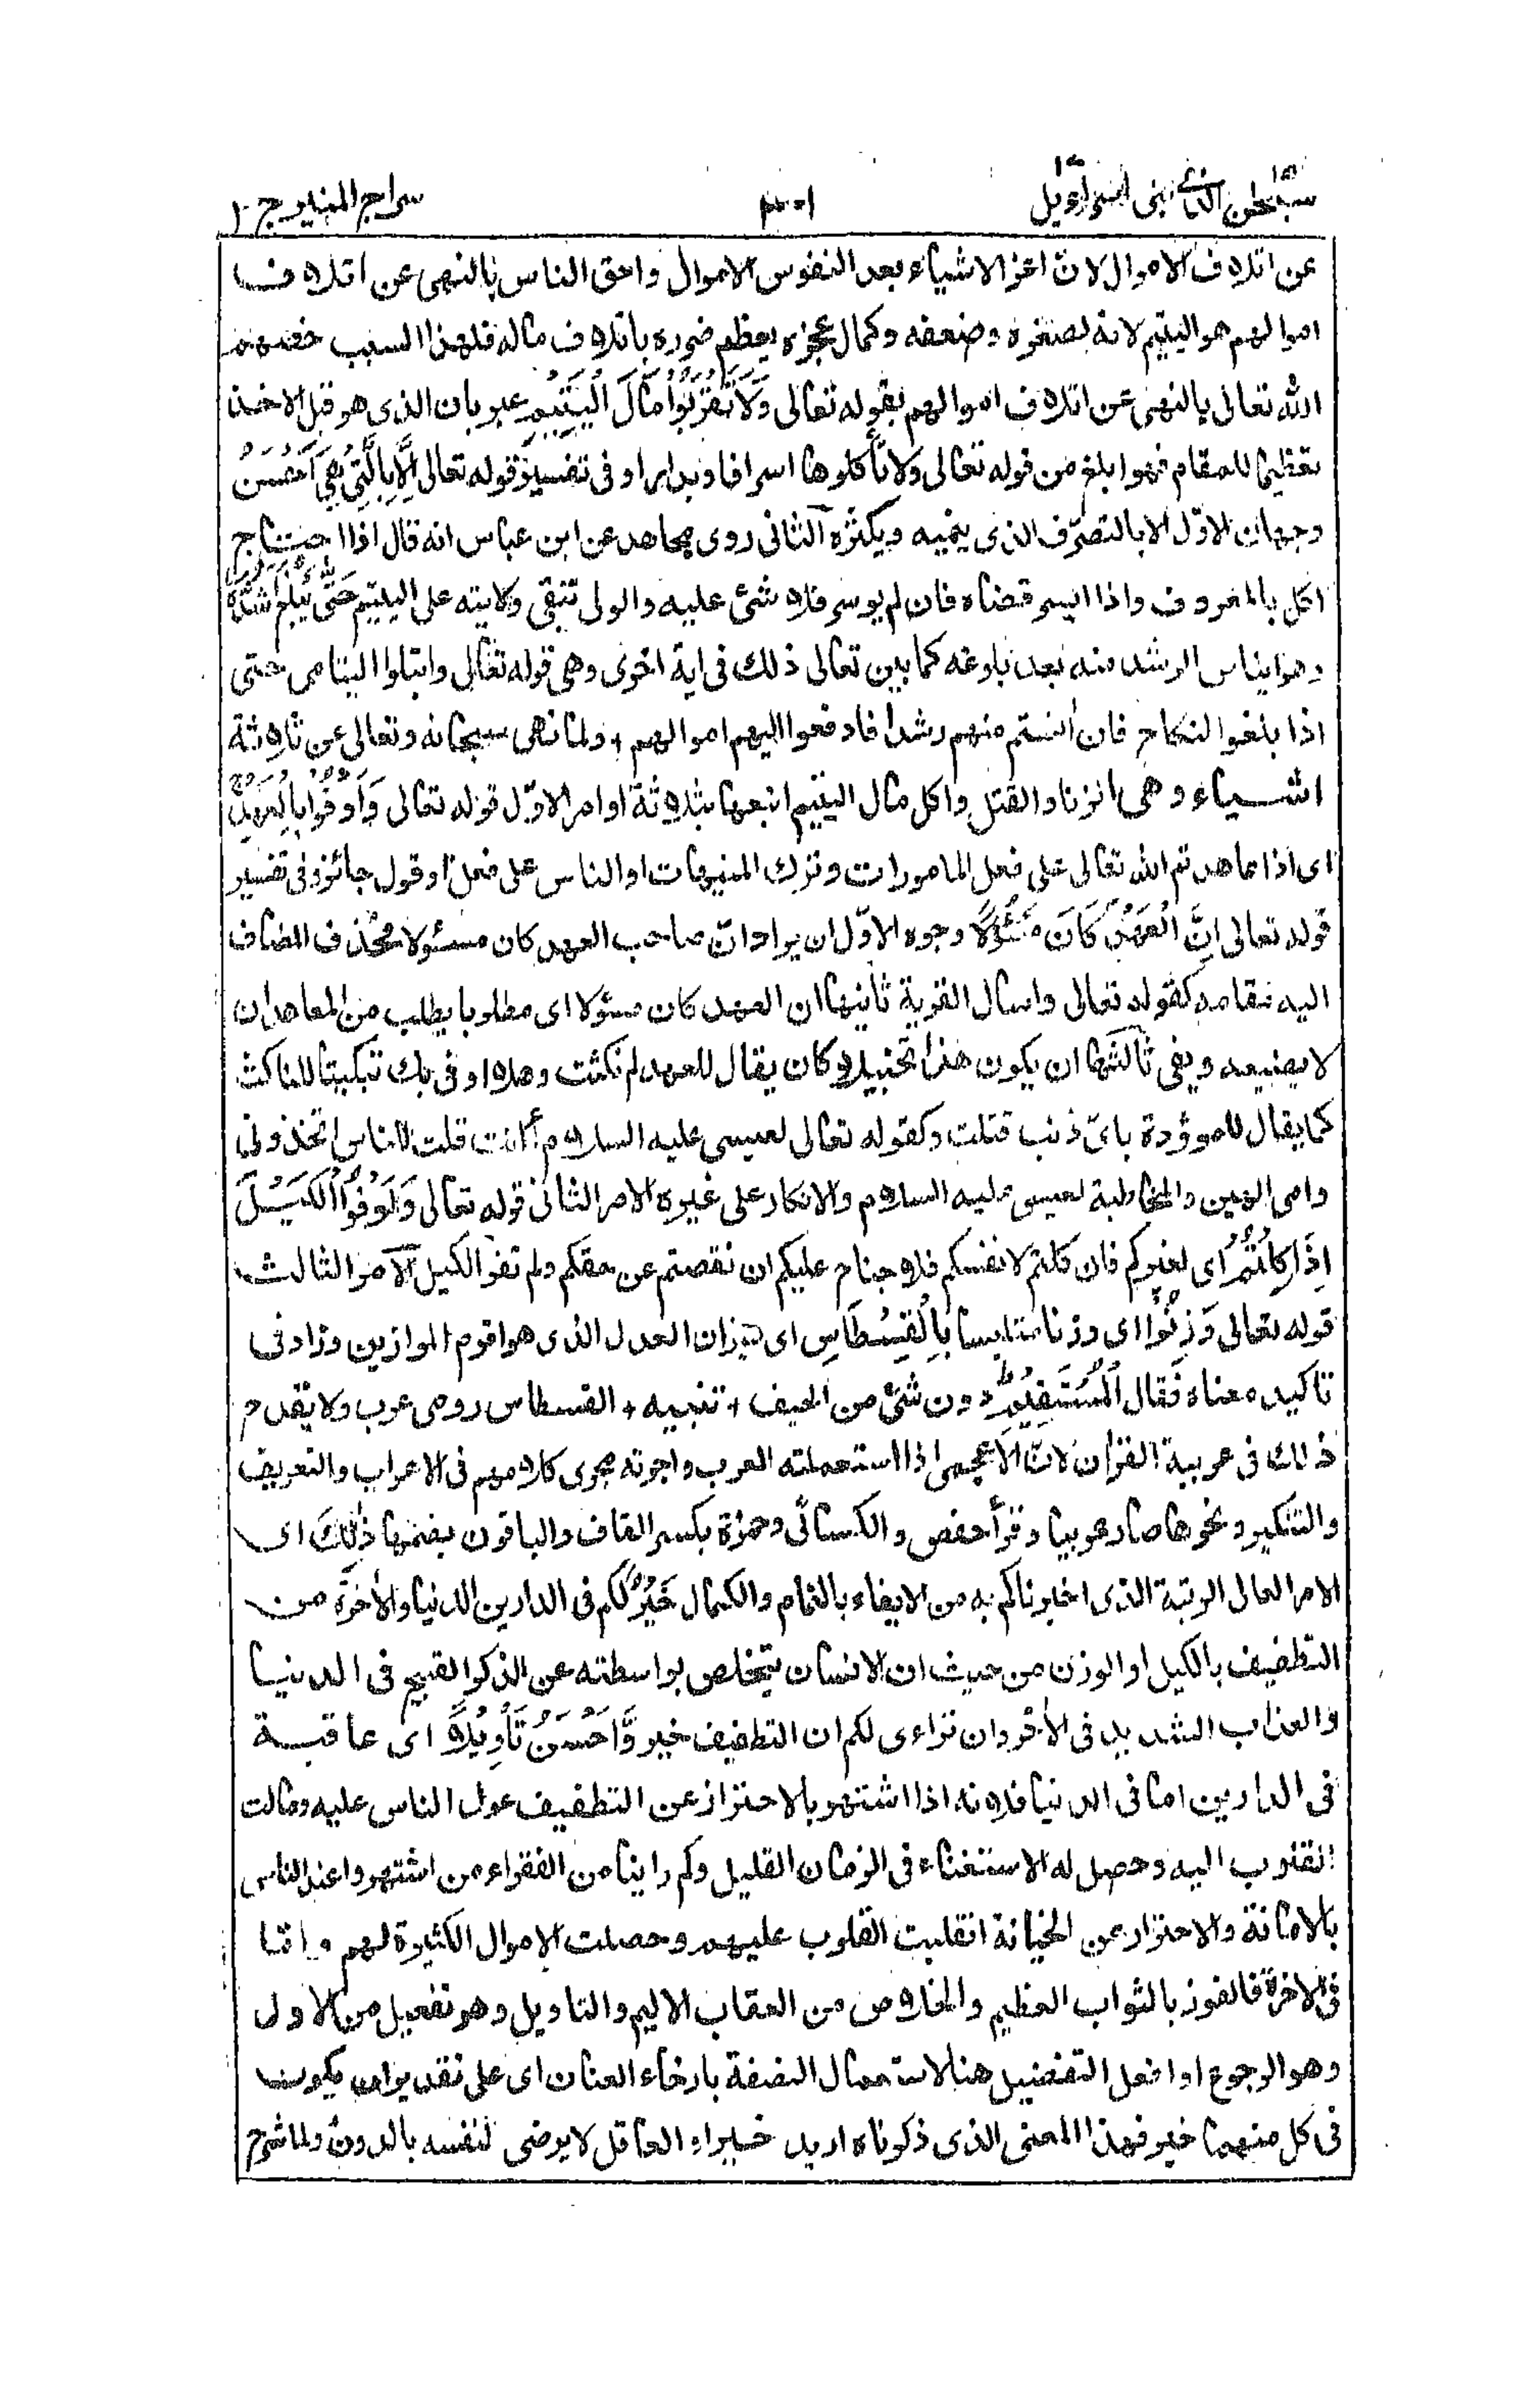 سبحٰن الذى ١٥ بنى اسرآءيل ١٧
٣٠١
سراج المنير ج ٢
عن اتلاف الاموال لانّ اعز الاشياء بعد النفوس الاموال واحق الناس بالنهى عن اتلاف
اموالهم هو اليتيم لانه لصغره وضعفه وكمال عجزه يعظم ضرره باتلاف ماله فلهذا السبب خصهم
الله تعالى بالنهى عن اتلاف اموالهم بقوله تعالى وَلَا تَقْرَبُوْا مَالَ الْيَتِيْمِ عبر بان الذى هو قبل الاخذ
تعظيما للمقام فهو ابلغ من قوله تعالى ولا تأكلوها اسرافا وبدارا وفى تفسير قوله تعالى اِلَّا بِالَّتِىْ هِىَ اَحْسَنُ
وجهان الاوّل الا بالتصرّف الذى ينميه ويكثره الثانى روى مجاهد عن ابن عباس انه قال اذا احتاج
اكل بالمعروف واذا ايسر قضاه فان لم يوسر فلا شئ عليه والولى تبقى ولايته على اليتيم حَتّٰى يَبْلُغَ اَشُدَّهٗ
وهو ايناس الرشد منه بعد بلوغه كما بين تعالى ذلك فى اية اخرى وهى قوله تعالى وابتلوا اليتامى حتى
اذا بلغوا النكاح فان اٰنستم منهم رشدا فادفعوا اليهم اموالهم + ولما نهى سبحانه وتعالى عن ثلاثة
اشياء وهى الزنا والقتل واكل مال اليتيم اتبعها بثلاثة اوامر الاوّل قوله تعالى وَاَوْفُوْا بِالْعَهْدِ
اى اذا عاهدتم الله تعالى على فعل المامورات وترك المنهيات او الناس على فعل او قول جائز وفى تفسير
قوله تعالى اِنَّ الْعَهْدَ كَانَ مَسْئُوْلًا وجوه الاوّل ان يراد انّ صاحب العهد كان مسئولا فحذف المضاف
اليه مقامه كقوله تعالى واسال القرية ثانيها ان العهد كان مسئولا اى مطلوبا يطلب من المعاهد ان
لا يضيعه ويفى ثالثها ان يكون هذا تخييلا كان يقال للعهد لم نكثت وهلا اوفى بك تبكيتا للناكث
كما يقال للموؤدة باىّ ذنب قتلت وكقوله تعالى لعيسى عليه السلام أانت قلت للناس اتخذونى
وامى الهين والمخاطبة لعيسى عليه السلام والانكار على غيره الامر الثانى قوله تعالى وَاَوْفُوا الْكَيْلَ
اِذَا كِلْتُمْ اى لغيركم فان كلتم لانفسكم فلا جناح عليكم ان نقصتم عن حقكم ولم تفوا الكيل الامر الثالث
قوله تعالى وَزِنُوْا اى وزنا متلبسا بِالْقِسْطَاسِ اى ميزان العدل الذى هو اقوم الموازين وزاد فى
تاكيد معناه فقال الْمُسْتَقِيْمِ دون شئ من الحيف + تنبيه + القسطاس رومى عرب ولا يقدح
ذلك فى عربية القرآن لانّ الاعجمى اذا استعملته العرب واجرته مجرى كلامهم فى الاعراب والتعريف
والتنكير ونحوها صار عربيا وقرأ حفص والكسائى وحمزة بكسر القاف والباقون بضمها ذٰلِكَ اى
الامر العالى الرتبة الذى اخبرناكم به من الايفاء بالتمام والكمال خَيْرٌ لكم فى الدارين الدنيا والاٰخرة من
التطفيف بالكيل او الوزن من حيث ان الانسان يتخلص بواسطته عن الذكر القبيح فى الدنيا
والعذاب الشديد فى الاٰخرة وان تراءى لكم ان التطفيف خير وَّاَحْسَنُ تَاْوِيْلًا اى عاقبة
فى الدارين اما فى الدنيا فلانه اذا اشتهر بالاحتراز عن التطفيف عول الناس عليه ومالت
القلوب اليه وحصل له الاستغناء فى الزمان القليل وكم راينا من الفقراء من اشتهروا عند الناس
بالامانة والاحتراز عن الخيانة انقلبت القلوب عليهم وحصلت الاموال الكثيرة لهم واما
فى الاخرة فالفوز بالثواب العظيم والخلاص من العقاب الاليم والتاويل وهو تفعيل من الاول
وهو الرجوع او افعل التفضيل هنا لاستعمال النصفة بارخاء العنان اى على تقدير ان يكون
فى كل منهما خير فهذا المعنى الذى ذكرناه ازيد خيرا والعاقل لا يرضى لنفسه بالدون ولما شرح